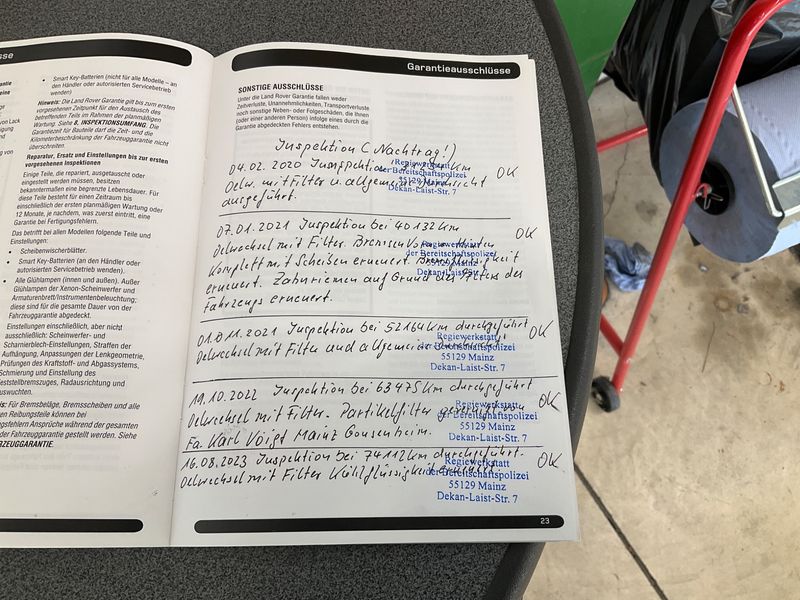 sse
• Smart Key-Batterien (nicht für alle Modelle – an
den Händler oder autorisierten Servicebetrieb
wenden)
Hinweis: Die Land Rover Garantie gilt bis zum ersten
vorgesehenen Zeitpunkt für den Austausch des
betreffenden Teils im Rahmen der planmäßigen
Wartung. Siehe 8, INSPEKTIONSUMFANG. Die
Garantiezeit für Bauteile darf die Zeit- und die
Kilometerbeschränkung der Fahrzeuggarantie nicht
überschreiten.
Reparatur, Ersatz und Einstellungen bis zur ersten
vorgesehenen Inspektionen
Einige Teile, die repariert, ausgetauscht oder
eingestellt werden müssen, besitzen
bekanntermaßen eine begrenzte Lebensdauer. Für
diese Teile besteht für einen Zeitraum bis
einschließlich der ersten planmäßigen Wartung oder
12 Monate, je nachdem, was zuerst eintritt, eine
Garantie bei Fertigungsfehlern.
Das betrifft bei allen Modellen folgende Teile und
Einstellungen:
• Scheibenwischerblätter.
• Smart Key-Batterien (an den Händler oder
autorisierten Servicebetrieb wenden).
• Alle Glühlampen (innen und außen). Außer
Glühlampen der Xenon-Scheinwerfer und
Armaturenbrett/Instrumentenbeleuchtung;
diese sind für die gesamte Dauer von der
Fahrzeuggarantie abgedeckt.
Einstellungen einschließlich, aber nicht
ausschließlich: Scheinwerfer- und
Scharnierblech-Einstellungen, Straffen der
Aufhängung, Anpassungen der Lenkgeometrie,
Prüfungen des Kraftstoff- und Abgassystems,
Schmierung und Einstellung des
Feststellbremszuges, Radausrichtung und
Auswuchten.
Hinweis: Für Bremsbeläge, Bremsscheiben und alle
Reibungsteile können bei
ngsfehlern Ansprüche während der gesamten
der Fahrzeuggarantie gestellt werden. Siehe
RZEUGGARANTIE.
Garantieausschlüsse
SONSTIGE AUSSCHLÜSSE
Unter die Land Rover Garantie fallen weder
Zeitverluste, Unannehmlichkeiten, Transportverluste
noch sonstige Neben- oder Folgeschäden, die Ihnen
(oder einer anderen Person) infolge eines durch die
Garantie abgedeckten Fehlers entstehen.
Inspektion (Nachtrag!)
04.02.2020 Inspektion km OK
Oelw. mit Filter u. allgemeine
ausgeführt.
Regiewerkstatt
der Bereitschaftspolizei
55129 Mainz
Dekan-Laist-Str. 7
07.01.2021 Inspektion bei 40132km OK
Oelwechsel mit Filter. Bremsen Vorn u. Hinten
Komplett mit Scheiben erneuert. Bremsflüssigkeit
erneuert. Zahnriemen auf Grund des Alters des
Fahrzeugs erneuert.
Regiewerkstatt
der Bereitschaftspolizei
55129 Mainz
Dekan-Laist-Str. 7
01.011.2021 Inspektion bei 52164km durchgeführt OK
Oelwechsel mit Filter und allgemeine
Regiewerkstatt
der Bereitschaftspolizei
55129 Mainz
Dekan-Laist-Str. 7
19.10.2022 Inspektion bei 63475km durchgeführt OK
Oelwechsel mit Filter. Partikelfilter gereinigt von
Fa. Karl Voigt Mainz Gonsenheim.
Regiewerkstatt
der Bereitschaftspolizei
55129 Mainz
Dekan-Laist-Str. 7
16.08.2023 Inspektion bei 74112km durchgeführt. OK
Oelwechsel mit Filter Kühlflüssigkeit erneuert.
Regiewerkstatt
der Bereitschaftspolizei
55129 Mainz
Dekan-Laist-Str. 7
23